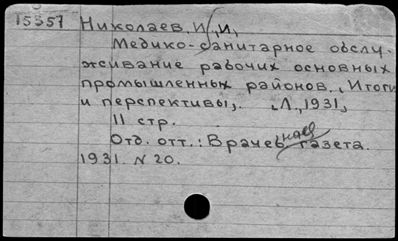 15357 Николаев, И. И.
Медико-санитарное обслу-
живание рабочих основных
промышленных районов. Итоги
и перспективы, Л., 1931,
11 стр.
Отд. отт.: Врачебная газета.
1931. N 20.